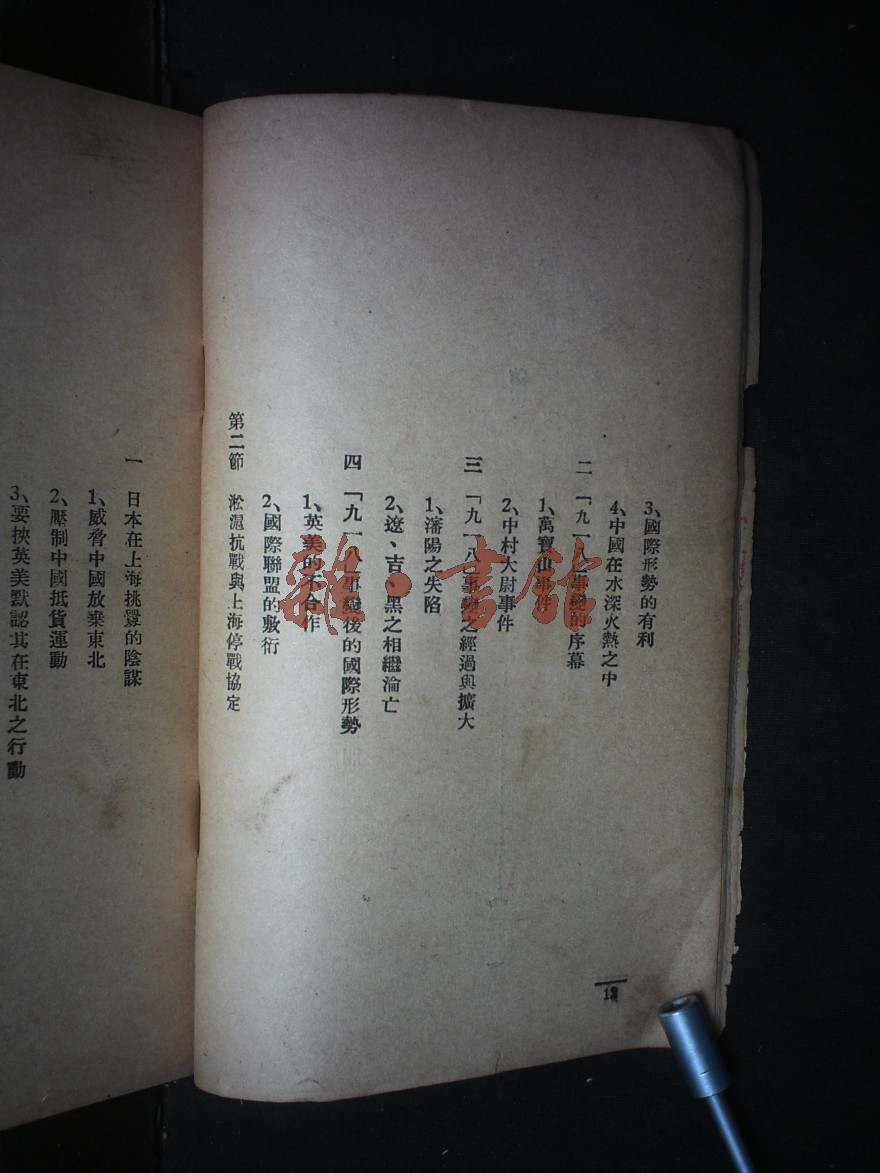 3、國際形勢的有利
4、中國在水深火熱之中
二　「九一八」事變的序幕
1、萬寶山事件
2、中村大尉事件
三　「九一八」事變之經過與擴大
1、瀋陽之失陷
2、遼、吉、黑之相繼淪亡
四　「九一八」事變後的國際形勢
1、英美的不合作
2、國際聯盟的敷衍
第二節　淞滬抗戰與上海停戰協定
一　日本在上海挑釁的陰謀
1、威脅中國放棄東北
2、壓制中國抵貨運動
3、要挾英美默認其在東北之行動
雜·書館